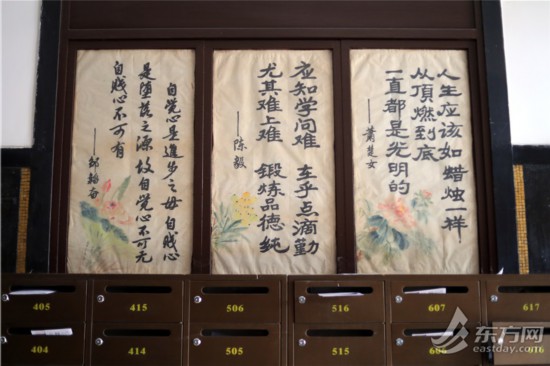 人生应该如蜡烛一样
从頂燃到底
一直都是光明的
——萧楚女
应知学问难 在乎点滴勤
尤其难上难 锻炼品德纯
——陈毅
自觉心是進步之母 自贱心
是堕落之源 故自觉心不可无
自贱心不可有
——邹韬奋
405 415 506 516 607 617
404 414 505 515 606
东方网
eastday.com